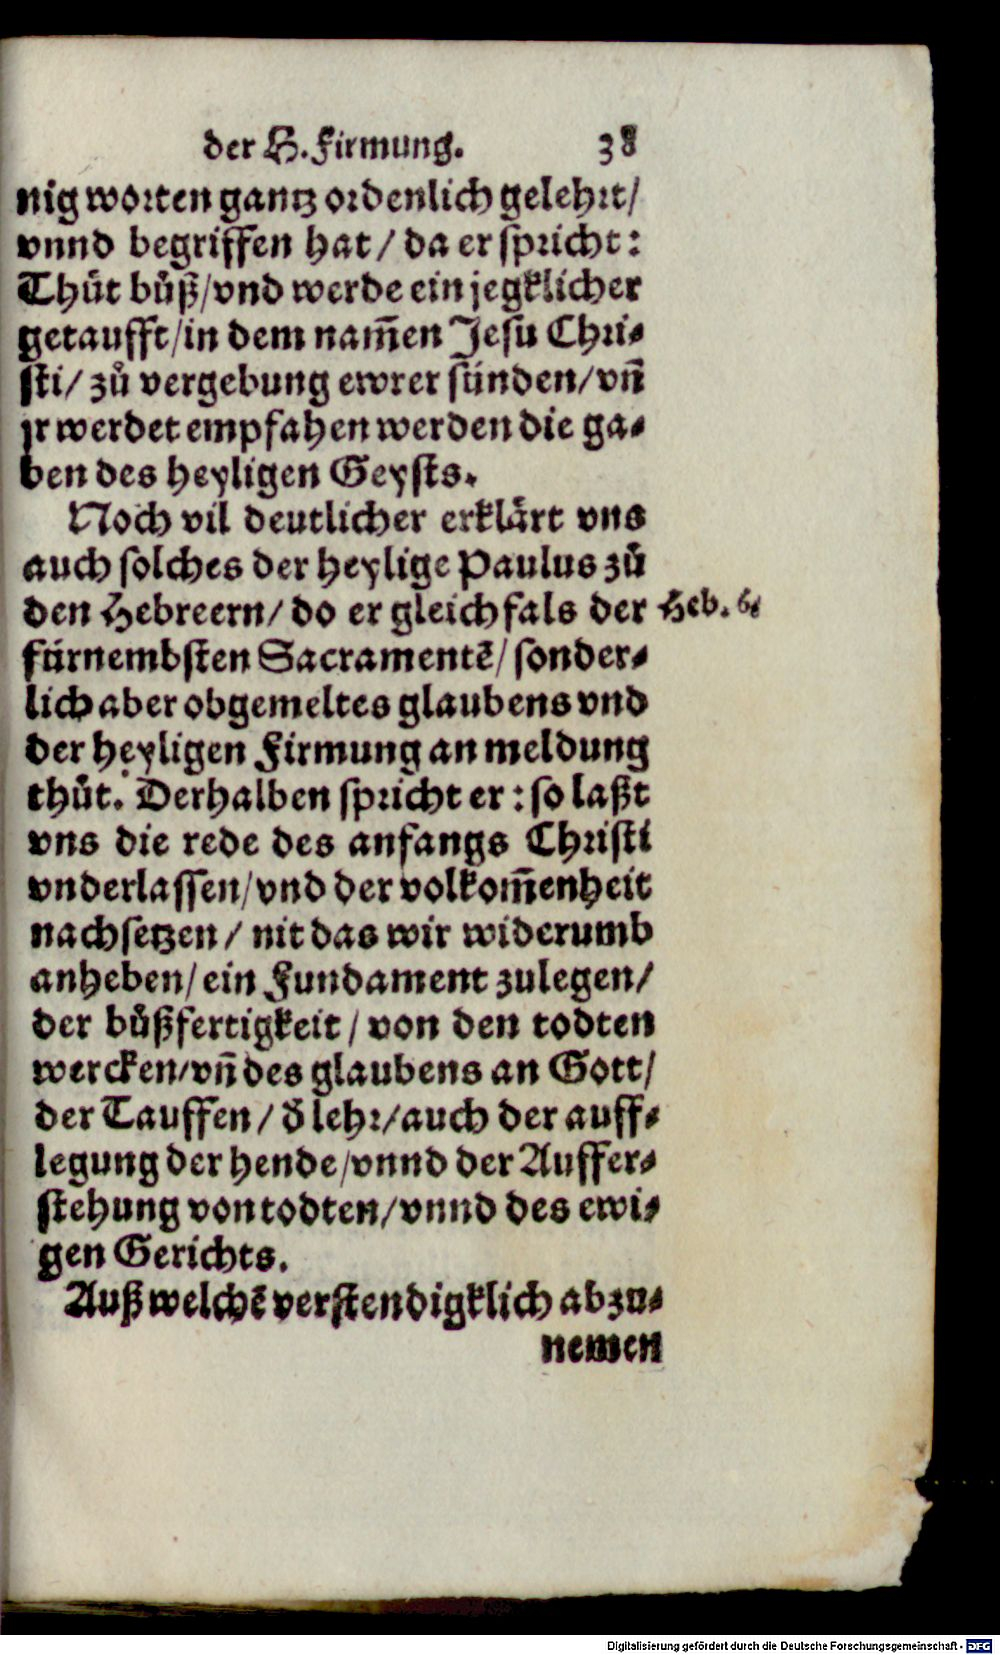 der H. Firmung. 38
nig worten gantz ordenlich gelehrt/
vnnd begriffen hat / da er spricht:
Thůt bůß/vnd werde ein jegklicher
getaufft/in dem nam̃en Jesu Chri⸗
sti/ zů vergebung ewrer sünden/vn̄
jr werdet empfahen werden die ga⸗
ben des heyligen Geysts.
Noch vil deutlicher erklärt vns
auch solches der heylige Paulus zů
den Hebreern/ do er gleichfals der Heb. 6.
fürnembsten Sacramentē/ sonder⸗
lich aber obgemeltes glaubens vnd
der heyligen Firmung an meldung
thůt. Derhalben spricht er : so laßt
vns die rede des anfangs Christi
vnderlassen/vnd der volkom̃enheit
nachsetzen / nit das wir widerumb
anheben/ ein Fundament zulegen/
der bůßfertigkeit / von den todten
wercken/vn̄ des glaubens an Gott/
der Tauffen / d̄ lehr/auch der auff⸗
legung der hende/vnnd der Auffer⸗
stehung von todten/vnnd des ewi⸗
gen Gerichts.
Auß welchē verstendigklich abzu⸗
nemen
Digitalisierung gefördert durch die Deutsche Forschungsgemeinschaft - DFG